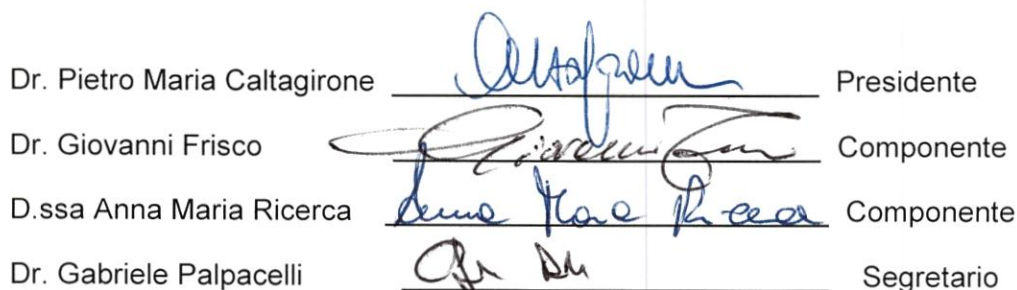 Dr. Pietro Maria Caltagirone Presidente
Dr. Giovanni Frisco Giovanni Componente
D.ssa Anna Maria Ricerca Anna Maria Ricerca Componente
Dr. Gabriele Palpacelli Segretario